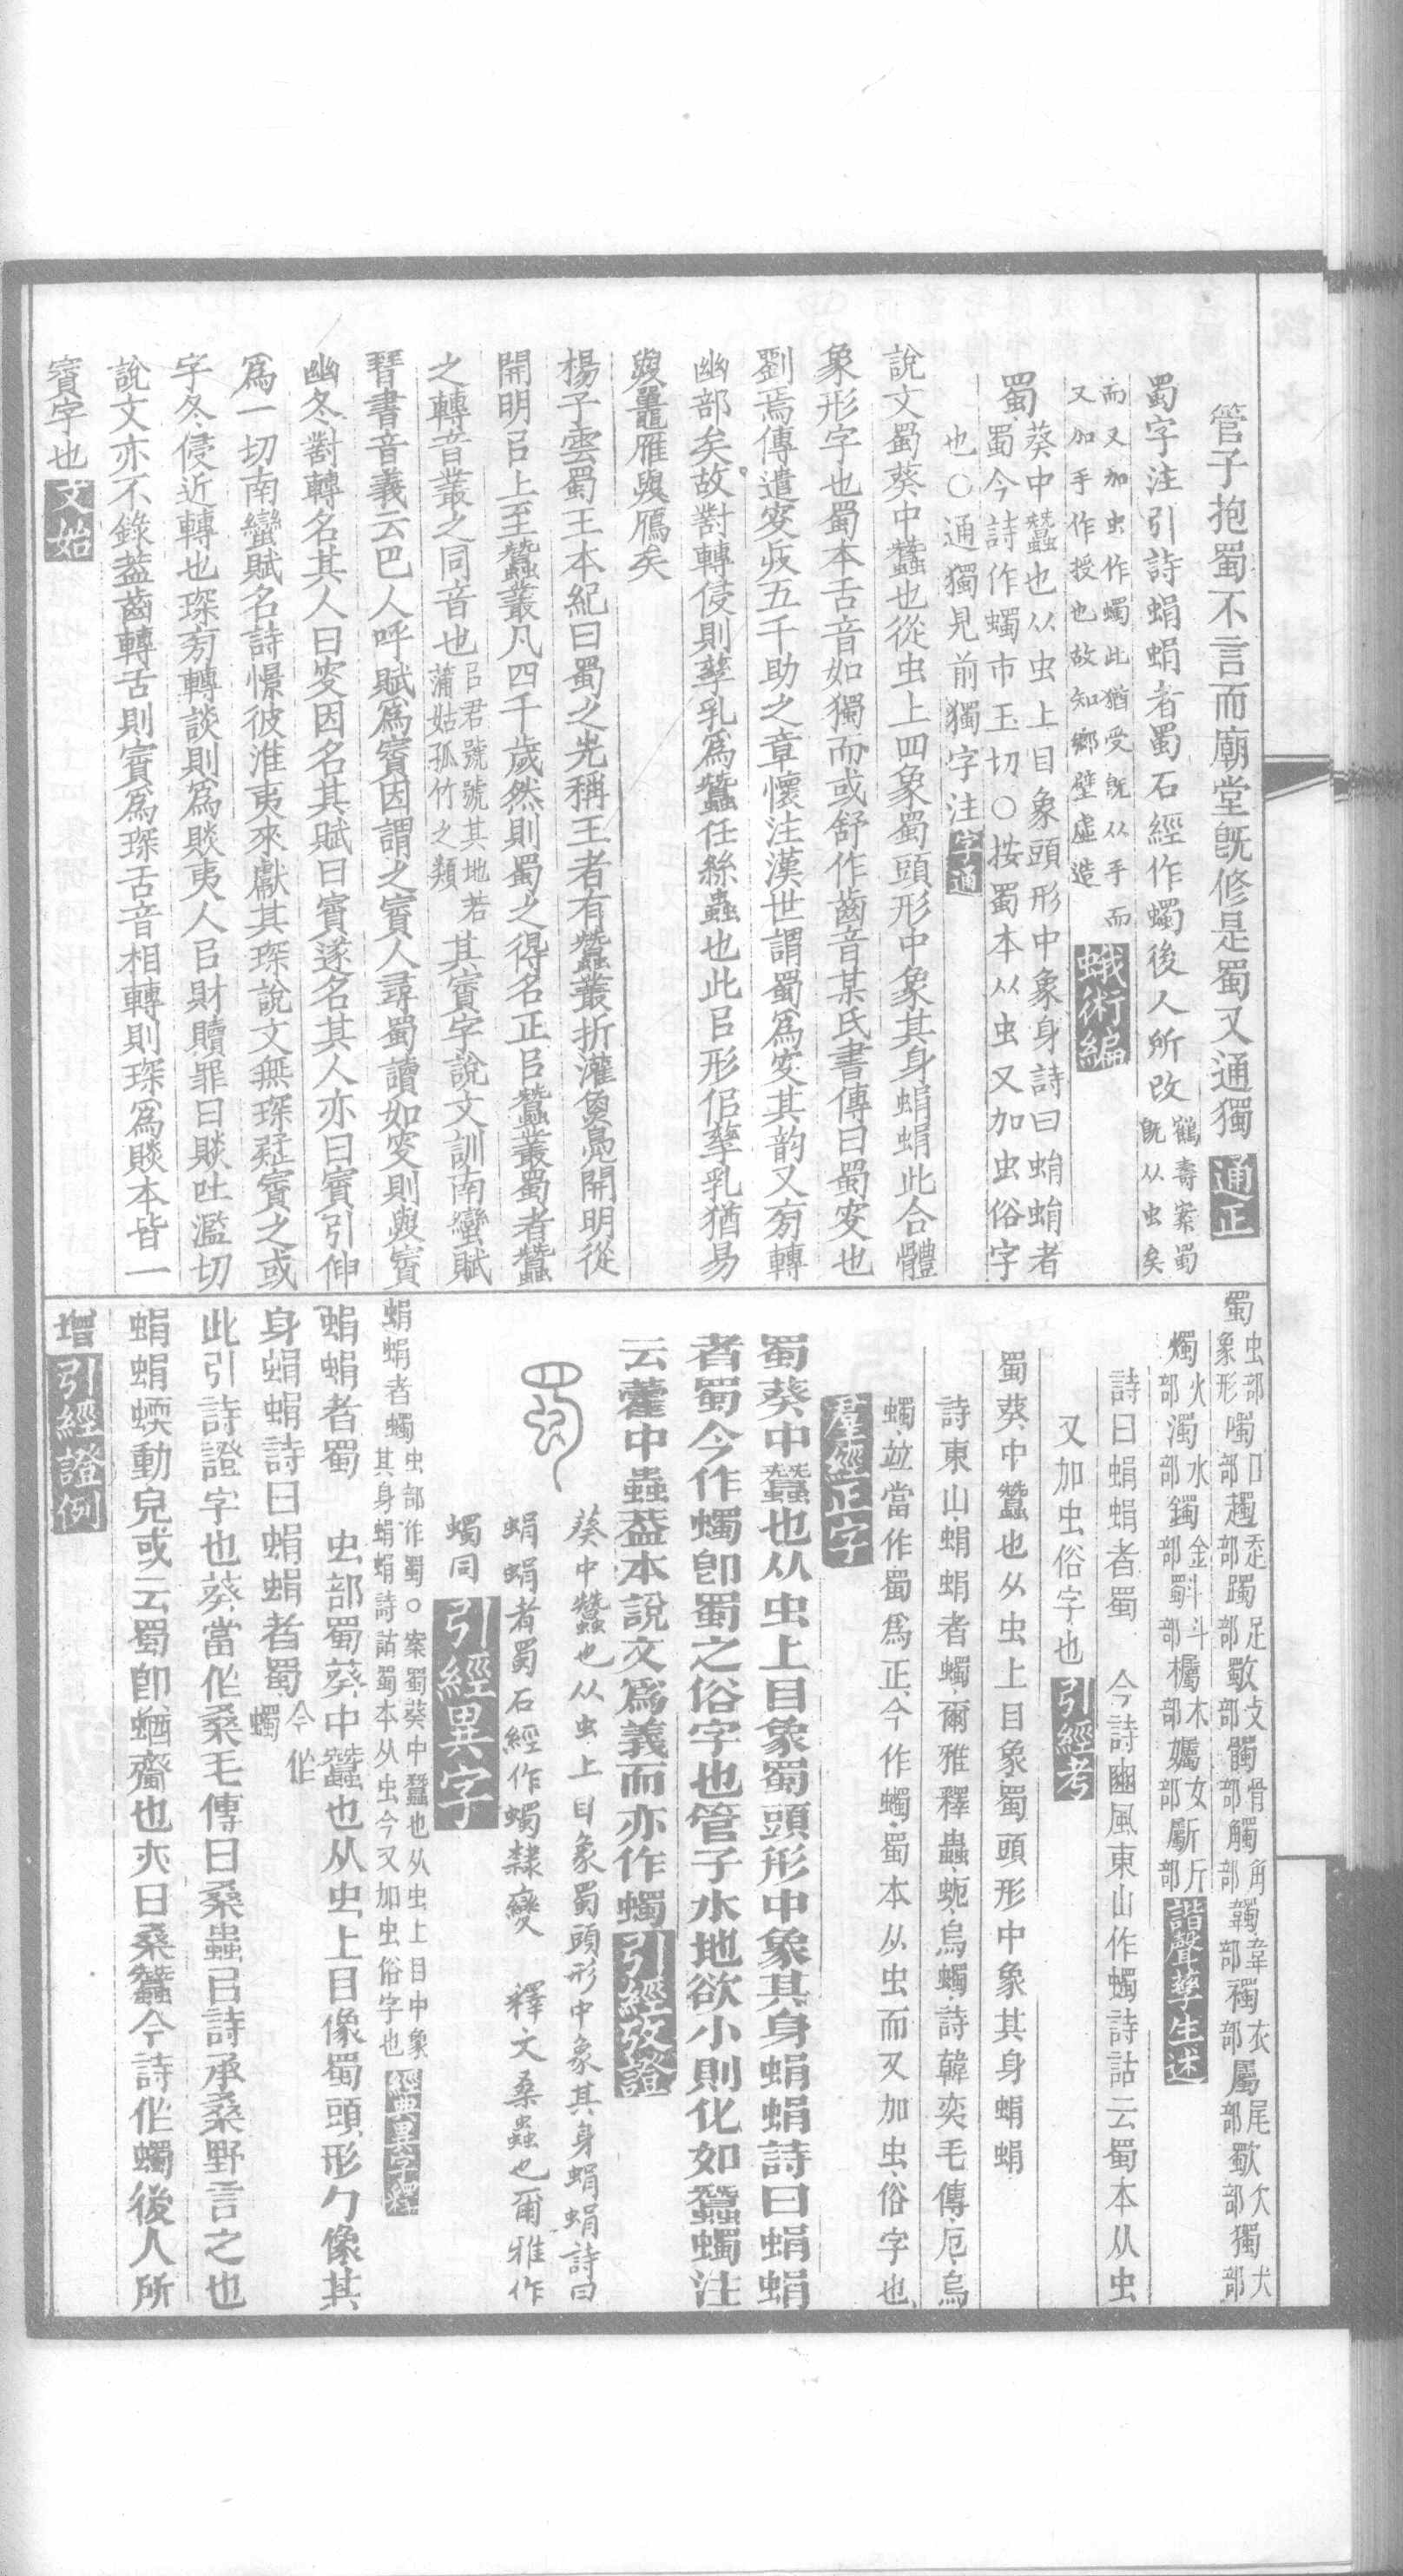 管子抱蜀不言而廟堂旣修是蜀又通獨 通正
蜀字注引詩蜎蜎者蜀石經作蠋後人所改鶴壽案蜀旣从虫矣
而又加虫作蠋此猶受旣从手而又加手作授也故知鄉壁虛造 蛾術編
蜀葵中蠶也从虫上目象頭形中象身詩曰蜎蜎者
蜀今詩作蠋市玉切○按蜀本从虫又加虫俗字
也○通獨見前獨字注 字通
說文蜀葵中蠶也從虫上四象蜀頭形中象其身蜎蜎此合體
象形字也蜀本舌音如獨而或舒作齒音某氏書傳曰蜀叟也
劉焉傳遣叟兵五千助之章懷注漢世謂蜀爲叟其韵又旁轉
幽部矣故對轉侵則孳乳爲蠶任絲蟲也此㠯形侣孳乳猶易
與鼉雁與鴈矣
楊子雲蜀王本紀曰蜀之先稱王者有蠶叢折灌魚鳧開明從
開明㠯上至蠶叢凡四千歲然則蜀之得名正㠯蠶叢蜀者蠶
之轉音叢之同音也㠯君號號其地若蒲姑孤竹之類其賨字說文訓南蠻賦
晉書音義云巴人呼賦爲賨因謂之賨人尋蜀讀如叟則與賨
幽冬對轉名其人曰叟因名其賦曰賨遂名其人亦曰賨引伸
爲一切南蠻賦名詩憬彼淮夷來獻其琛說文無琛疑賨之或
字冬侵近轉也琛旁轉談則爲賧夷人㠯財贖罪曰賧吐濫切
說文亦不錄葢齒轉舌則賨爲琛舌音相轉則琛爲賧本皆一
賨字也 文始
蜀虫部象形 噣口部 趜走部 躅足部 斀攴部 髑骨部 觸角部 韣韋部 襡衣部 屬尾部 歜欠部 獨犬部
燭火部 濁水部 鐲金部 斣斗部 欘木部 孎女部 斸斤部 諧聲孳生述
詩曰蜎蜎者蜀 今詩豳風東山作蠋詩詁云蜀本从虫
又加虫俗字也 引經考
蜀葵中蠶也从虫上目象蜀頭形中象其身蜎蜎
詩東山蜎蜎者蠋爾雅釋蟲蚅烏蠋詩韓奕毛傳厄烏
蠋竝當作蜀爲正今作蠋蜀本从虫而又加虫俗字也
羣經正字
蜀葵中蠶也从虫上目象蜀頭形中象其身蜎蜎詩曰蜎蜎
者蜀今作蠋卽蜀之俗字也管子水地欲小則化如蠶蠋注
云藿中蟲葢本說文爲義而亦作蠋 引經攷證
蜀 葵中蠶也从虫上目象蜀頭形中象其身蜎蜎詩曰
蜎蜎者蜀石經作蠋隸變 釋文桑蟲也爾雅作
蠋同 引經異字
蜎蜎者蠋虫部作蜀○案蜀葵中蠶也从虫上目中象其身蜎蜎詩詁蜀本从虫今又加虫俗字也 經典異字釋
蜎蜎者蜀 虫部蜀葵中蠶也从虫上目像蜀頭形勹像其
身蜎蜎詩曰蜎蜎者蜀今作蠋
此引詩證字也葵當作桑毛傳曰桑蟲㠯詩承桑野言之也
蜎蜎蝡動皃或云蜀卽蝤齏也亦曰桑蠶今詩作蠋後人所
增 引經證例